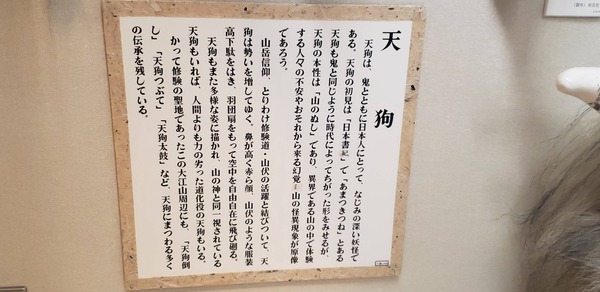 天狗
天狗は、鬼とともに日本人にとって、なじみの深い妖怪で
ある。天狗の初見は「日本書紀」で「あまつきつね」とある
天狗も鬼と同じように時代によってちがった形をみせるが、
天狗の本性は「山のぬし」であり、異界である山の中で体験
する人々の不安やおそれから来る幻覚=山の怪異現象が原像
であろう。
山岳信仰、とりわけ修験道・山伏の活躍と結びついて、天
狗は勢いを増してゆく。鼻が高く赤ら顔、山伏のような服装
高下駄をはき、羽団扇をもって空中を自由自在に飛び廻る。
天狗もまた多様な姿に描かれ、山の神と同一視されている
天狗もいれば、人間よりも力の劣った道化役の天狗もいる。
かつて修験の聖地であったこの大江山周辺にも、「天狗倒
し」「天狗つぶて」「天狗太鼓」など、天狗にまつわる多く
の伝承を残している。